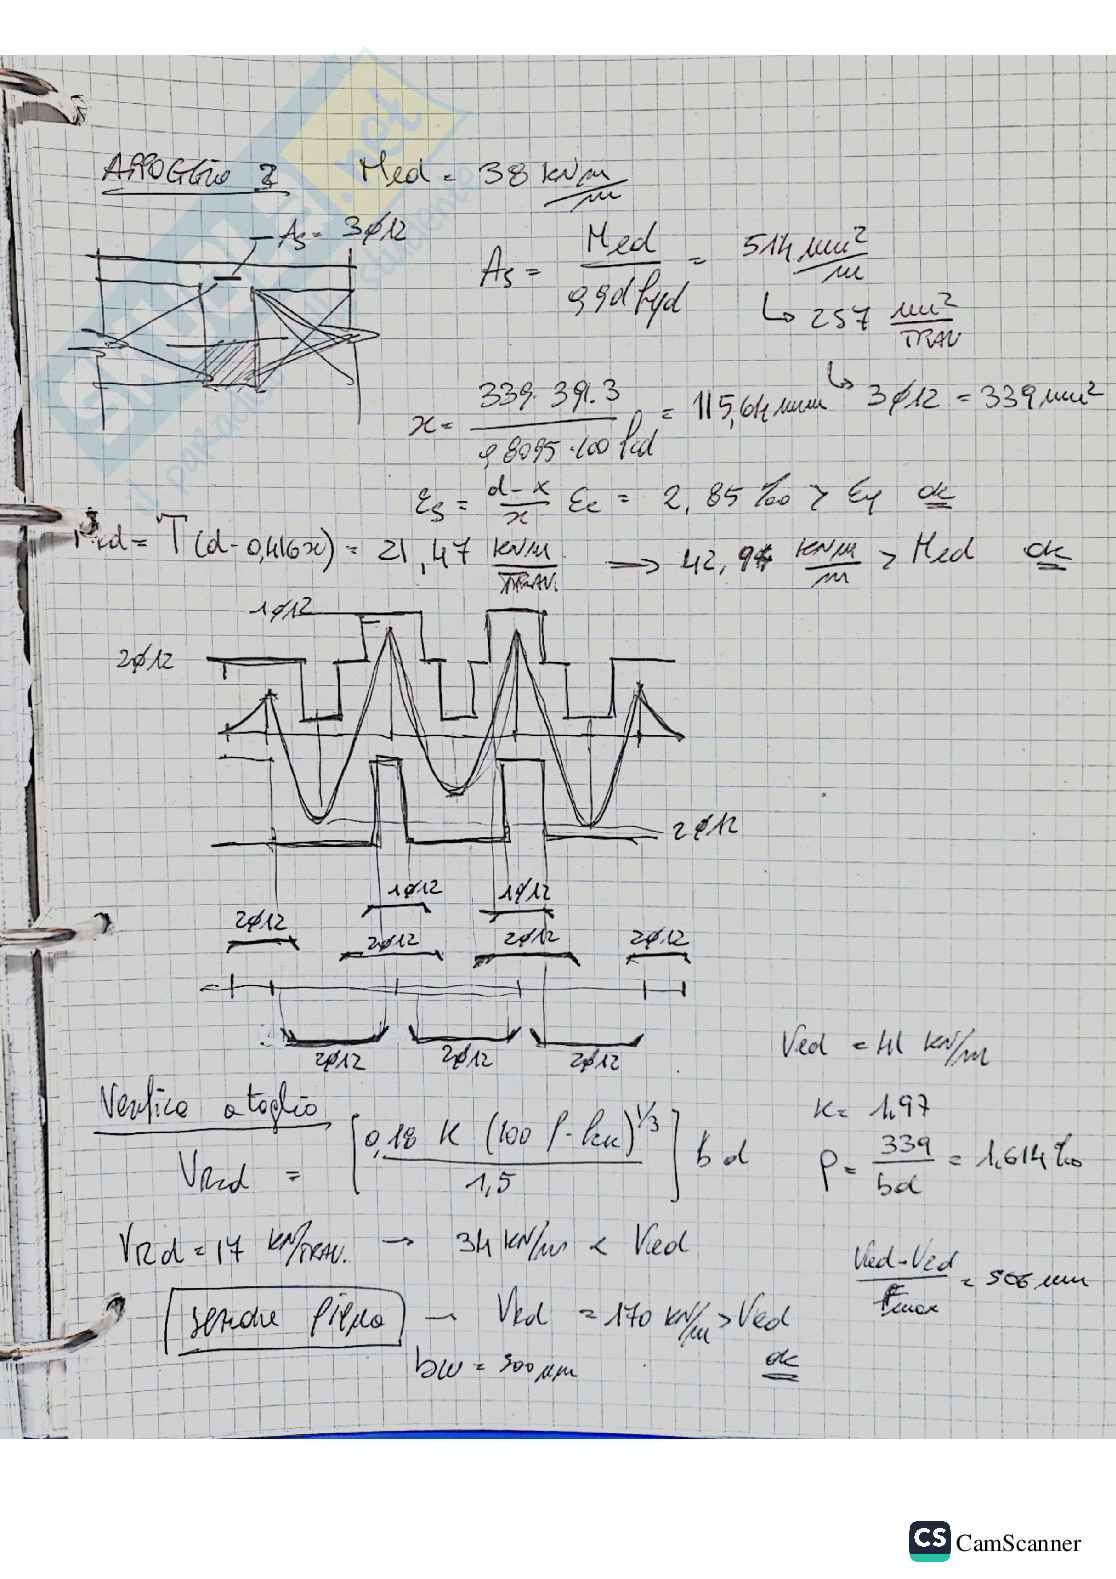 APPOGGIO 2 Med = 38 kNm/m
As = 3ϕ12
As = Med / 0,9d fyd = 514 mm²/m
↳ 257 mm²/TRAV
↳ 3ϕ12 = 339 mm²
x = 339·391.3 / 0,8095·100 fcd = 115,64 mm
εs = d-x/x εc = 2,85‰ > εy ok
Mrd = T(d-0,416x) = 21,47 kNm/TRAV. → 42,94 kNm/m > Med ok
1ϕ12
2ϕ12
2ϕ12
1ϕ12 1ϕ12
2ϕ12 2ϕ12 2ϕ12 2ϕ12
2ϕ12 2ϕ12 2ϕ12
Ved = 41 kN/m
Verifica a taglio
K = 1,97
VRcd = [0,18 K (100 ρ·fck)^1/3 / 1,5] b d
ρ = 339/bd = 1,614‰
VRd = 17 kN/TRAV. → 34 kN/m < Ved
= 506 mm
→ Vrd = 170 kN/m > Ved
bw = 500 mm ok
CS CamScanner